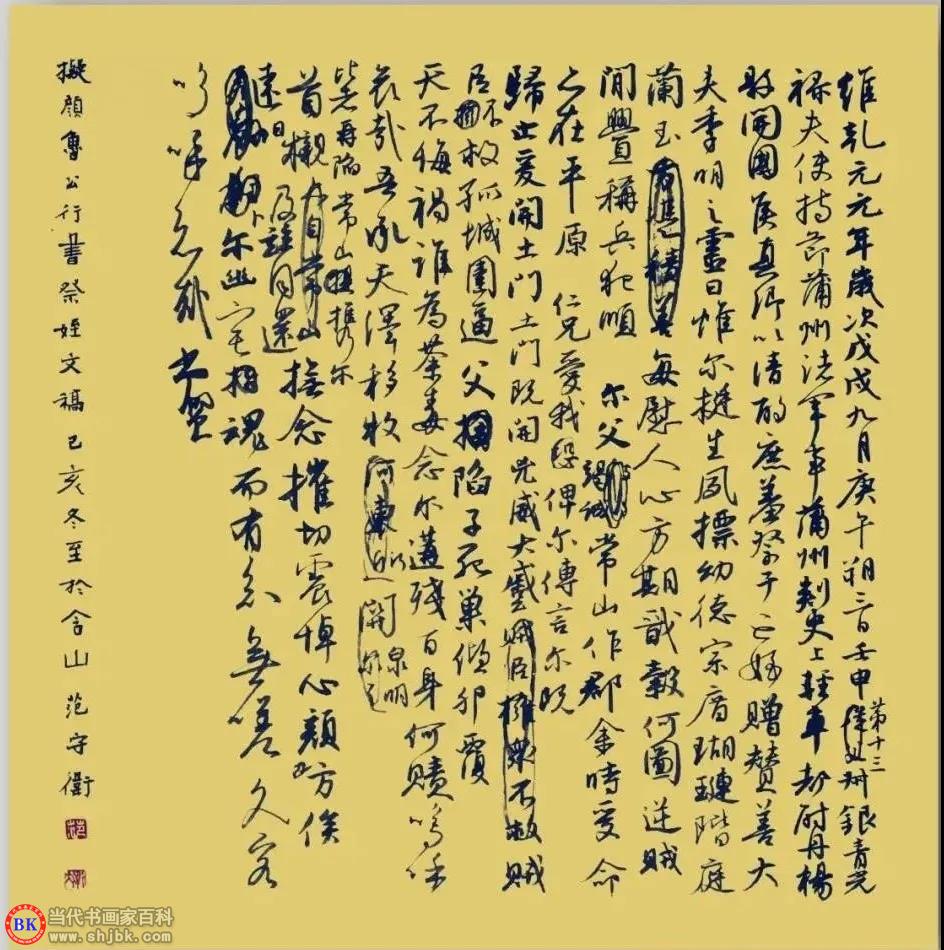 維乾元元年歲次戊戌九月庚午朔三日壬申第十三叔銀青光
祿夫使持節蒲州諸軍事蒲州刺史上輕車都尉丹楊
縣開國侯真卿以清酌庶羞祭于亡姪贈賛善大
夫季明之靈曰惟尔挺生夙標幼德宗廟瑚璉階庭
蘭玉每慰人心方期戩穀何圖逆賊
閒釁稱兵犯順 尔父竭誠常山作郡余時受命
亦在平原 仁兄愛我俾尔傳言尔既
歸止爰開土門土門既開凶威大蹙賊臣擁衆不救賊
臣不救孤城圍逼父陷子死巢傾卵覆
天不悔禍誰為荼毒念尔遘殘百身何贖嗚呼
哀哉吾承天澤移牧河東近泉明
比者再陷常山提攜尔
首櫬及自常山撫念摧切震悼心顏方俟
遠日及茲同還
卜尔幽宅相魂而有知無嗟久客
嗚呼哀哉尚饗
擬顏魯公行書祭姪文稿己亥冬至於含山范守衛
當代书画家百科
www.shjbk.com
BK